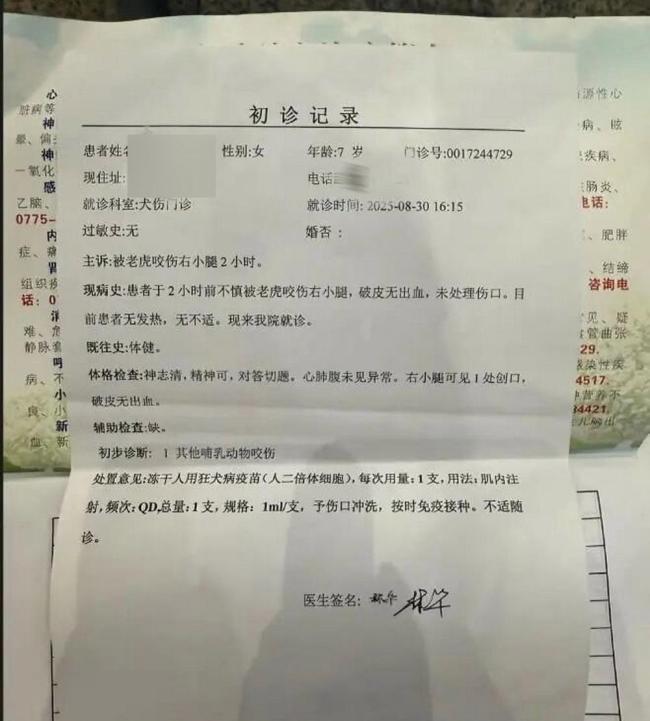 初诊记录
患者姓名 性别:女 年龄:7 岁 门诊号:0017244729
现住址: 电话
就诊科室:犬伤门诊 就诊时间: 2025-08-30 16:15
过敏史:无 婚否 :
主诉:被老虎咬伤右小腿 2 小时。
现病史:患者于 2 小时前不慎被老虎咬伤右小腿，破皮无出血，未处理伤口。目
前患者无发热，无不适。现来我院就诊。
既往史:体健。
体格检查:神志清，精神可，对答切题。心肺腹未见异常。右小腿可见 1 处创口，
破皮无出血。
辅助检查:缺。
初步诊断: 1 其他哺乳动物咬伤
处置意见:冻干人用狂犬病疫苗(人二倍体细胞)，每次用量:1 支，用法:肌内注
射，频次:QD,总量:1 支，规格: 1ml/支，予伤口冲洗，按时免疫接种。不适随
诊。
医生签名: 林华 林华
心
脏病等
晕、偏
神
一氧化
感
乙脑、
0775-
内
症、
组织
话:
难、
静脉
病、不
小
良、小
新
血、新
源性心
病、眩
疾病、
肠炎、
电话:
、肥胖
、结缔
咨询电
常见、疑
管曲张
29.
感染性疾
4517.
种营养不
34421.
儿脑出